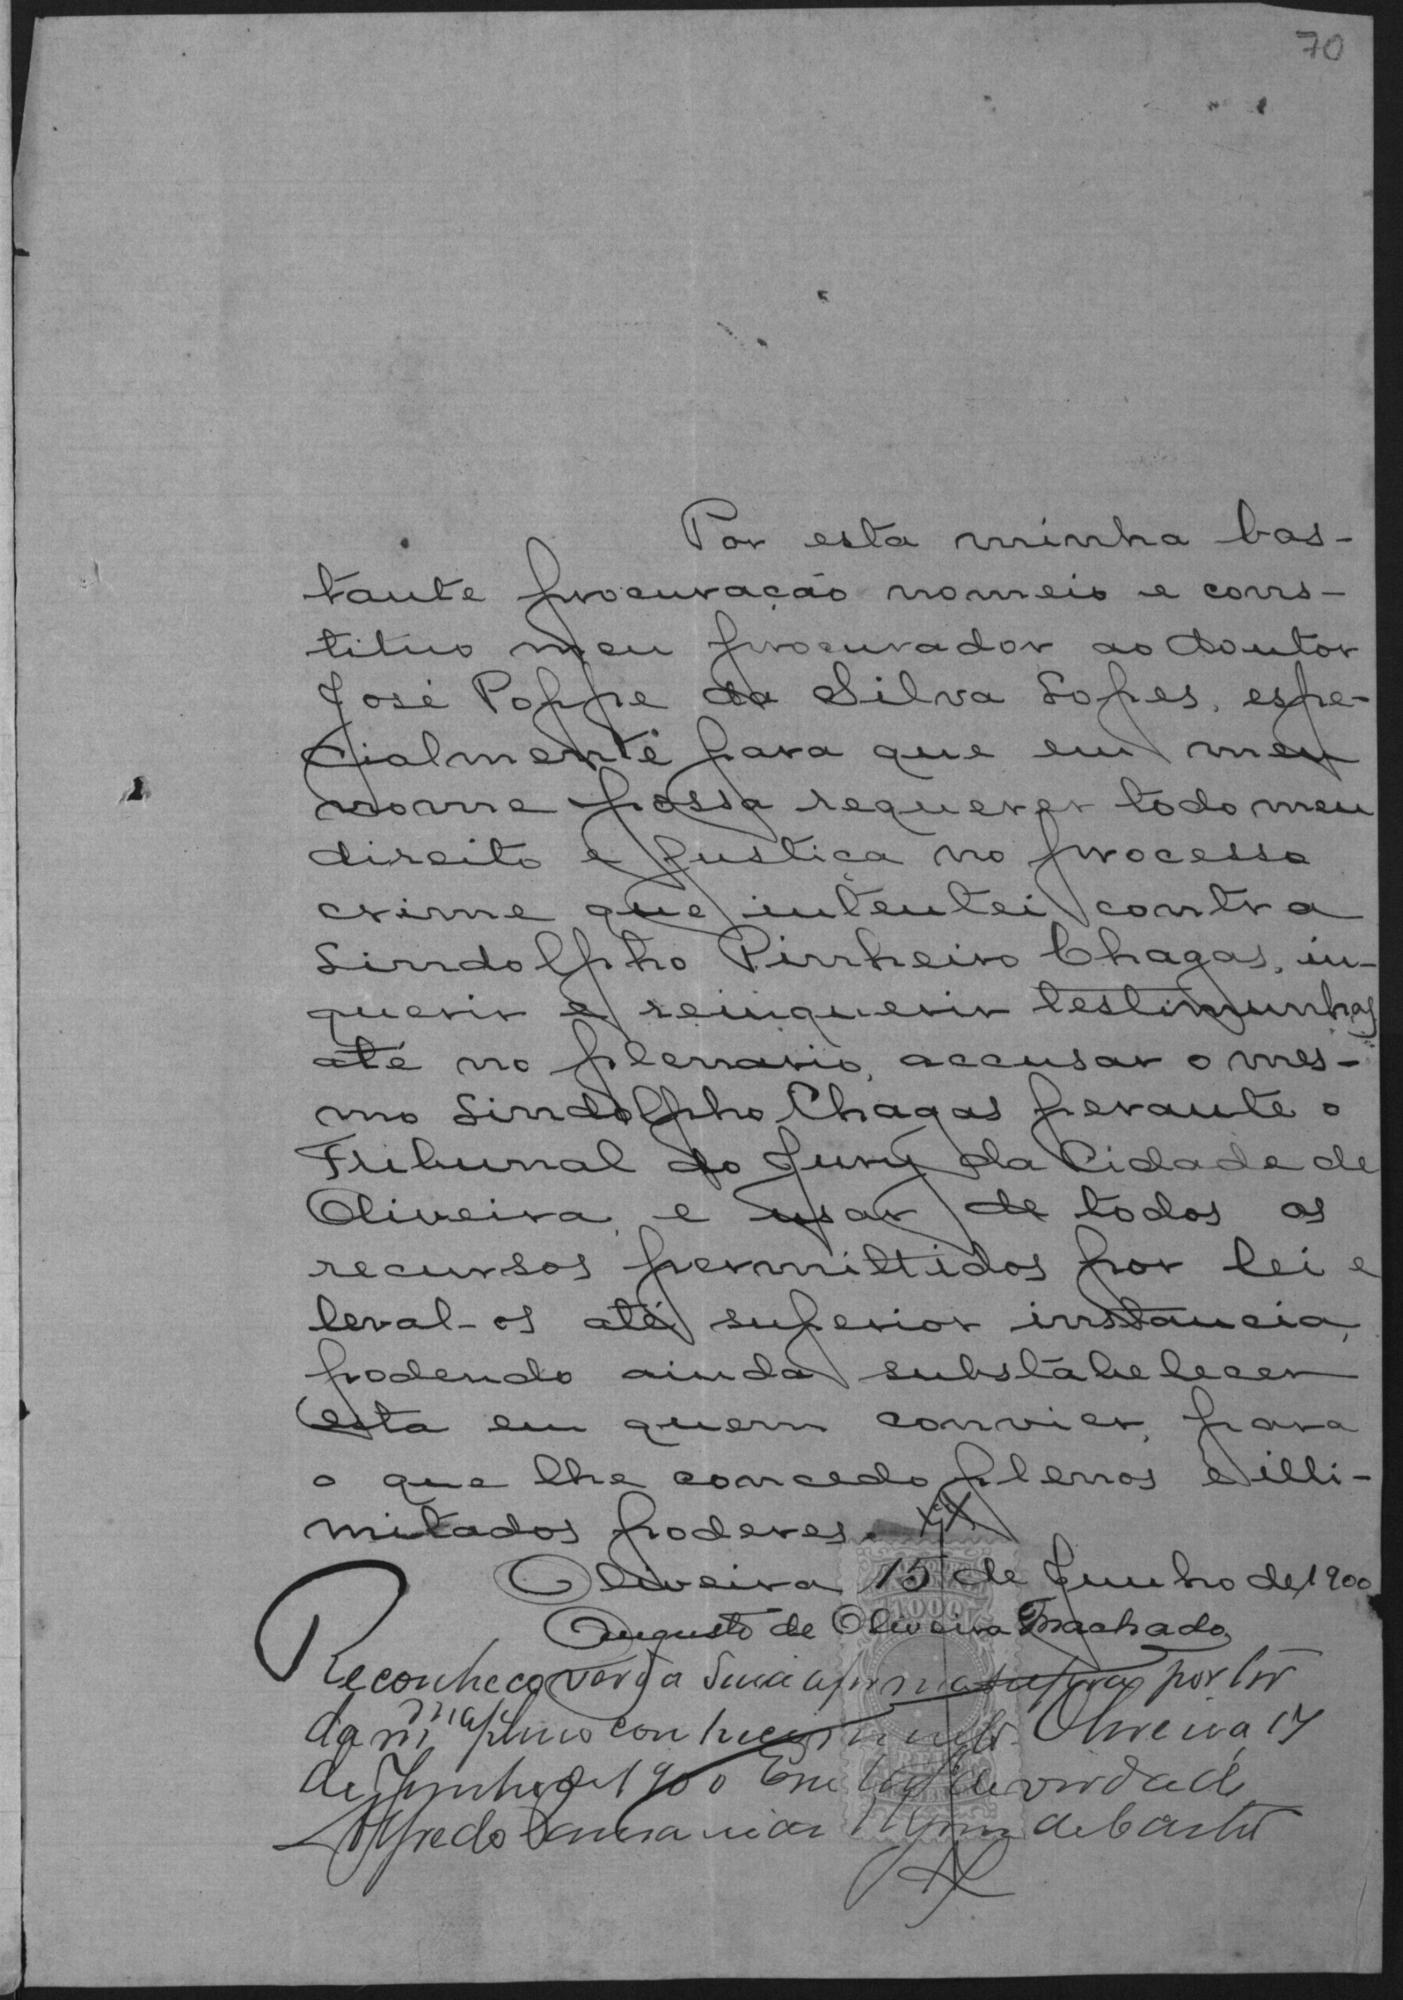 70
Por esta minha bas-
tante procuração nomeio e cons-
tituo meu procurador ao doutor
José Poppe da Silva Lopes, espe-
cialmente para que em meu
nome possa requerer todo meu
direito e justiça no processo
crime que intentei contra
Lindolpho Pinheiro Chagas, in-
querir e reinquerir testimunhas
até no plenario, accusar o mes-
mo Lindolpho Chagas perante o
Tribunal do Jury da Cidade de
Oliveira, e usar de todos os
recursos permittidos por lei e
leval-os até superior instancia,
podendo ainda substabelecer
esta em quem convier, para
o que lhe concedo plenos e illi-
mitados poderes.
Oliveira 15 de Junho de 1900
1000
Augusto de Oliveira Machado
Reconheço verda a firma supra por ter
da mma pleno conhecimento. Oliveira 17
de Junho de 1900 Em testo de verdade
Alfredo de Castro